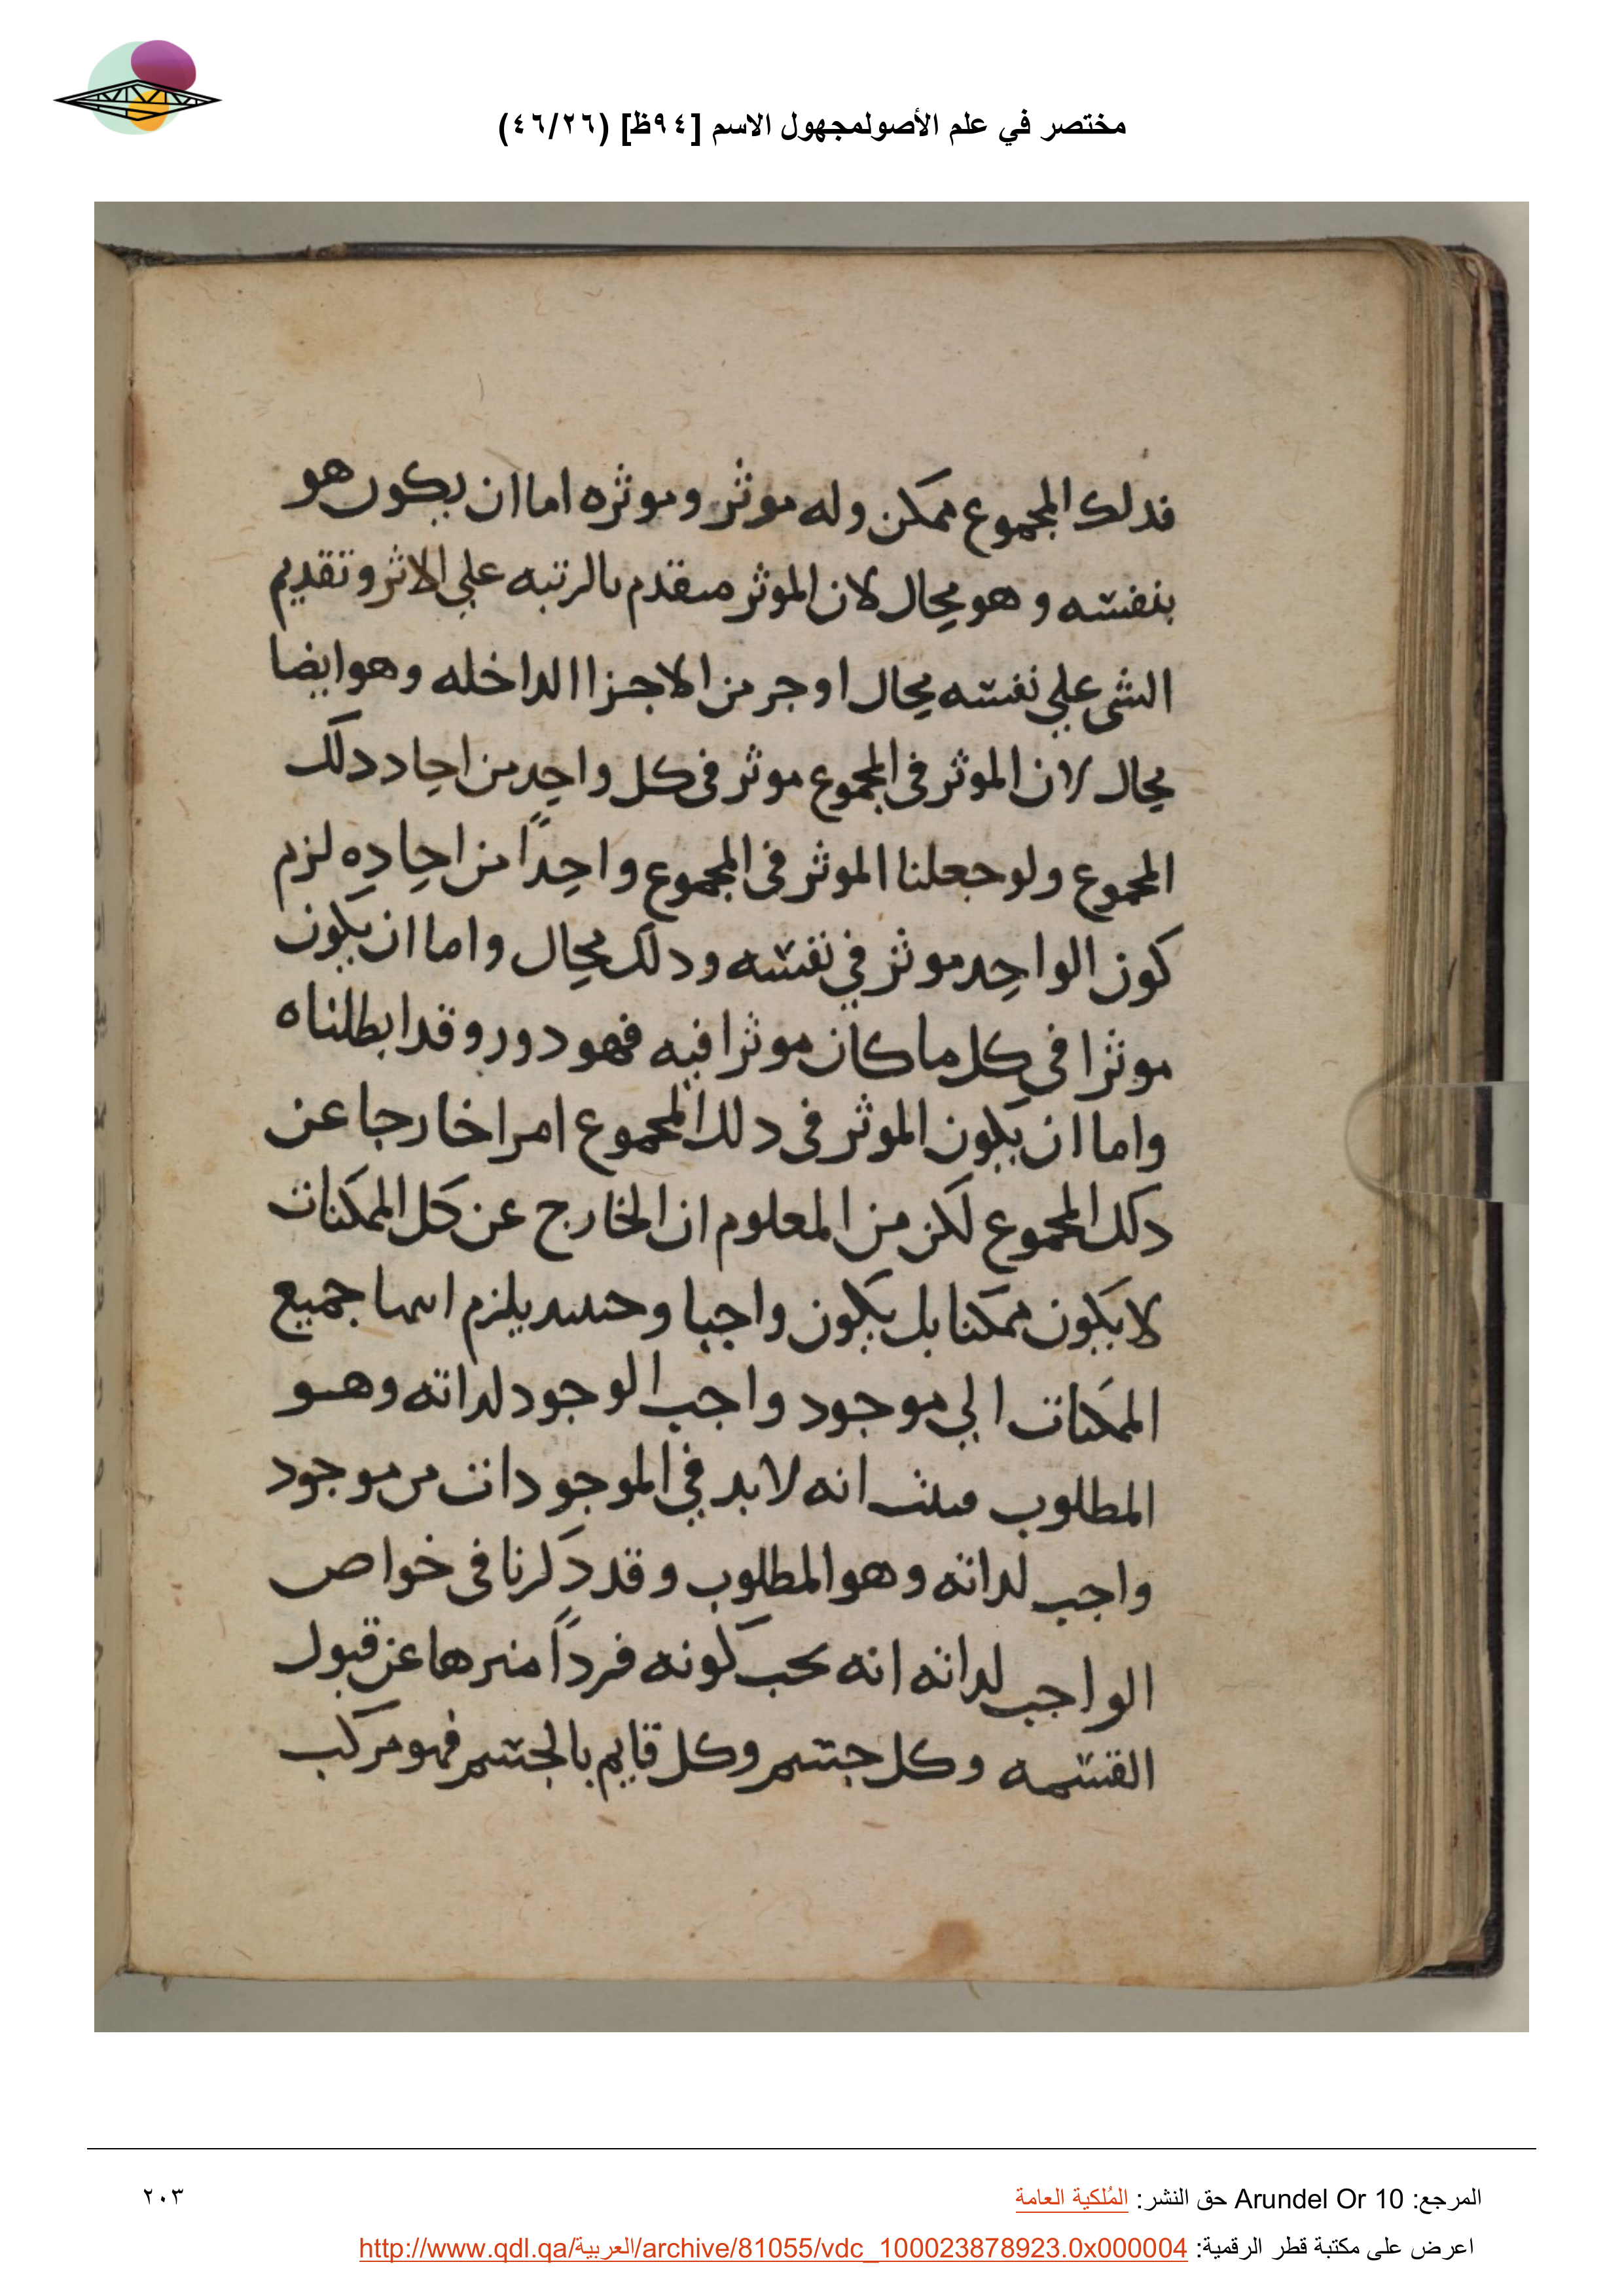 مختصر في علم الأصولمجهول الاسم [٩٤ظ] (٤٦/٢٦)
فدلك المجموع ممكن وله موثر وموثره اما ان يكون هو
بنفسه وهو محال لان الموثر متقدم بالرتبه علي الاثر وتقديم
الشي علي نفسه محال او جز من الاجزا الداخله وهو ايضا
محال لان الموثر في المجموع موثر في كل واحد من احاد دلك
المجموع ولو جعلنا الموثر في المجموع واحدًا من احاده لزم
كون الواحد موثر في نفسه ودلك محال واما ان يكون
موثرا في كل ما كان موثرا فيه فهو دور وقد ابطلناه
واما ان يكون الموثر في دلك المجموع امرا خارجا عن
دلك المجموع لكن من المعلوم ان الخارج عن كل الممكنات
لا يكون ممكنا بل يكون واجبا وحينيد يلزم انتها جميع
الممكنات الي موجود واجب الوجود لداته وهو
المطلوب فثبت انه لا بد في الموجودات من موجود
واجب لداته وهو المطلوب وقد دكرنا في خواص
الواجب لداته انه يجب كونه فردًا منزها عن قبول
القسمه وكل جسم وكل قايم بالجسم فهو مركب
المرجع: Arundel Or 10 حق النشر: المُلكية العامة
٢٠٣
اعرض على مكتبة قطر الرقمية: http://www.qdl.qa/العربية/archive/81055/vdc_100023878923.0x000004